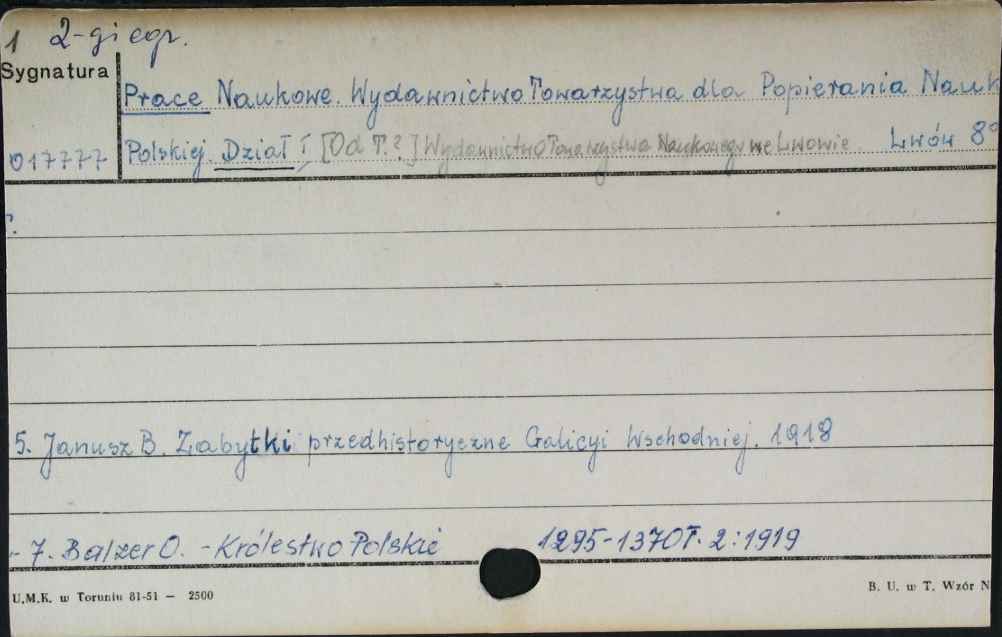 1 2-gi egz.
Sygnatura
Prace Naukowe. Wydawnictwo Towarzystwa dla Popierania Nauk
017777 Polskiej. Dział I [Od T.?] Wydawnictwo Towarzystwa Naukowego we Lwowie Lwów 8°
5. Janusz B. Zabytki przedhistoryczne Galicyi Wschodniej. 1918
- 7. Balzer O. - Królestwo Polskie 1295-1370 T. 2:1919
U.M.K. w Toruniu 81-51 — 2500 B. U. w T. Wzór N